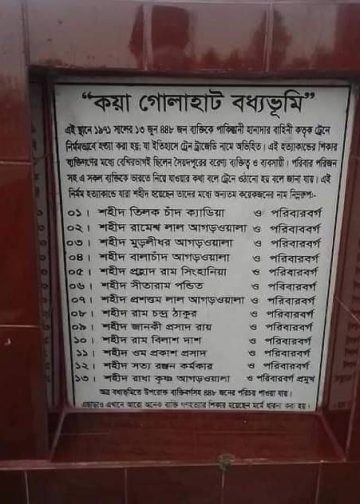 “কয়া গোলাহাট বধ্যভূমি”
এই স্থানে ১৯৭১ সালের ১৩ জুন ৪৪৮ জন ব্যক্তিকে পাকিস্তানী হানাদার বাহিনী কতৃক ট্রেনে
নির্মমভাবে হত্যা করা হয়; যা ইতিহাসে ট্রেন ট্রাজেডি নামে অভিহিত। এই হত্যাকান্ডের শিকার
ব্যক্তিগণের মধ্যে বেশিরভাগই ছিলেন সৈয়দপুরের বরেণ্য ব্যক্তিত্ব ও ব্যবসায়ী। পরিবার পরিজন
সহ এ সকল ব্যক্তিকে ভারতে নিয়ে যাওয়ার কথা বলে ট্রেনে ওঠানো হয় বলে জানা যায়। এই
নির্মম হত্যাকান্ডে যারা শহীদ হয়েছেন তাদের মধ্যে অন্যতম কয়েকজনের নাম নিম্নরুপঃ-
০১। শহীদ তিলক চাঁদ ক্যাডিয়া ও পরিবারবর্গ
০২। শহীদ রামেশ্ব লাল আগড়ওয়ালা ও পরিবাববর্গ
০৩। শহীদ মুড়লীধর আগড়ওয়ালা ও পরিবারবর্গ
০৪। শহীদ বালাচাঁদ আগড়ওয়ালা ও পরিবারবর্গ
০৫। শহীদ প্রহ্লাদ রাম সিংহানিয়া ও পরিবারবর্গ
০৬। শহীদ সীতারাম পন্ডিত ও পরিবারবর্গ
০৭। শহীদ লাল আগড়ওয়ালা ও পরিবারবর্গ
০৮। শহীদ রাম চন্দ্র ঠাকুর ও পরিবারবর্গ
০৯। শহীদ জানকী প্রসাদ রায় ও পরিবারবর্গ
১০। শহীদ রাম বিলাশ দাশ ও পরিবারবর্গ
১১। শহীদ ওম প্রকাশ প্রসাদ ও পরিবারবর্গ
১২। শহীদ সত্য রঞ্জন কর্মকার ও পরিবারবর্গ
১৩। শহীদ রাধা কৃষ্ণ আগড়ওয়ালা ও পরিবারবর্গ প্রমুখ
অত্র বধ্যভূমিতে উপরোক্ত ব্যক্তিবর্গসহ ৪৪৮ জনের পরিচয় পাওয়া যায়।
এছাড়াও এখানে আরো অনেক ব্যক্তি গণহত্যার শিকার হয়েছেন মর্মে ধারণা করা হয়।